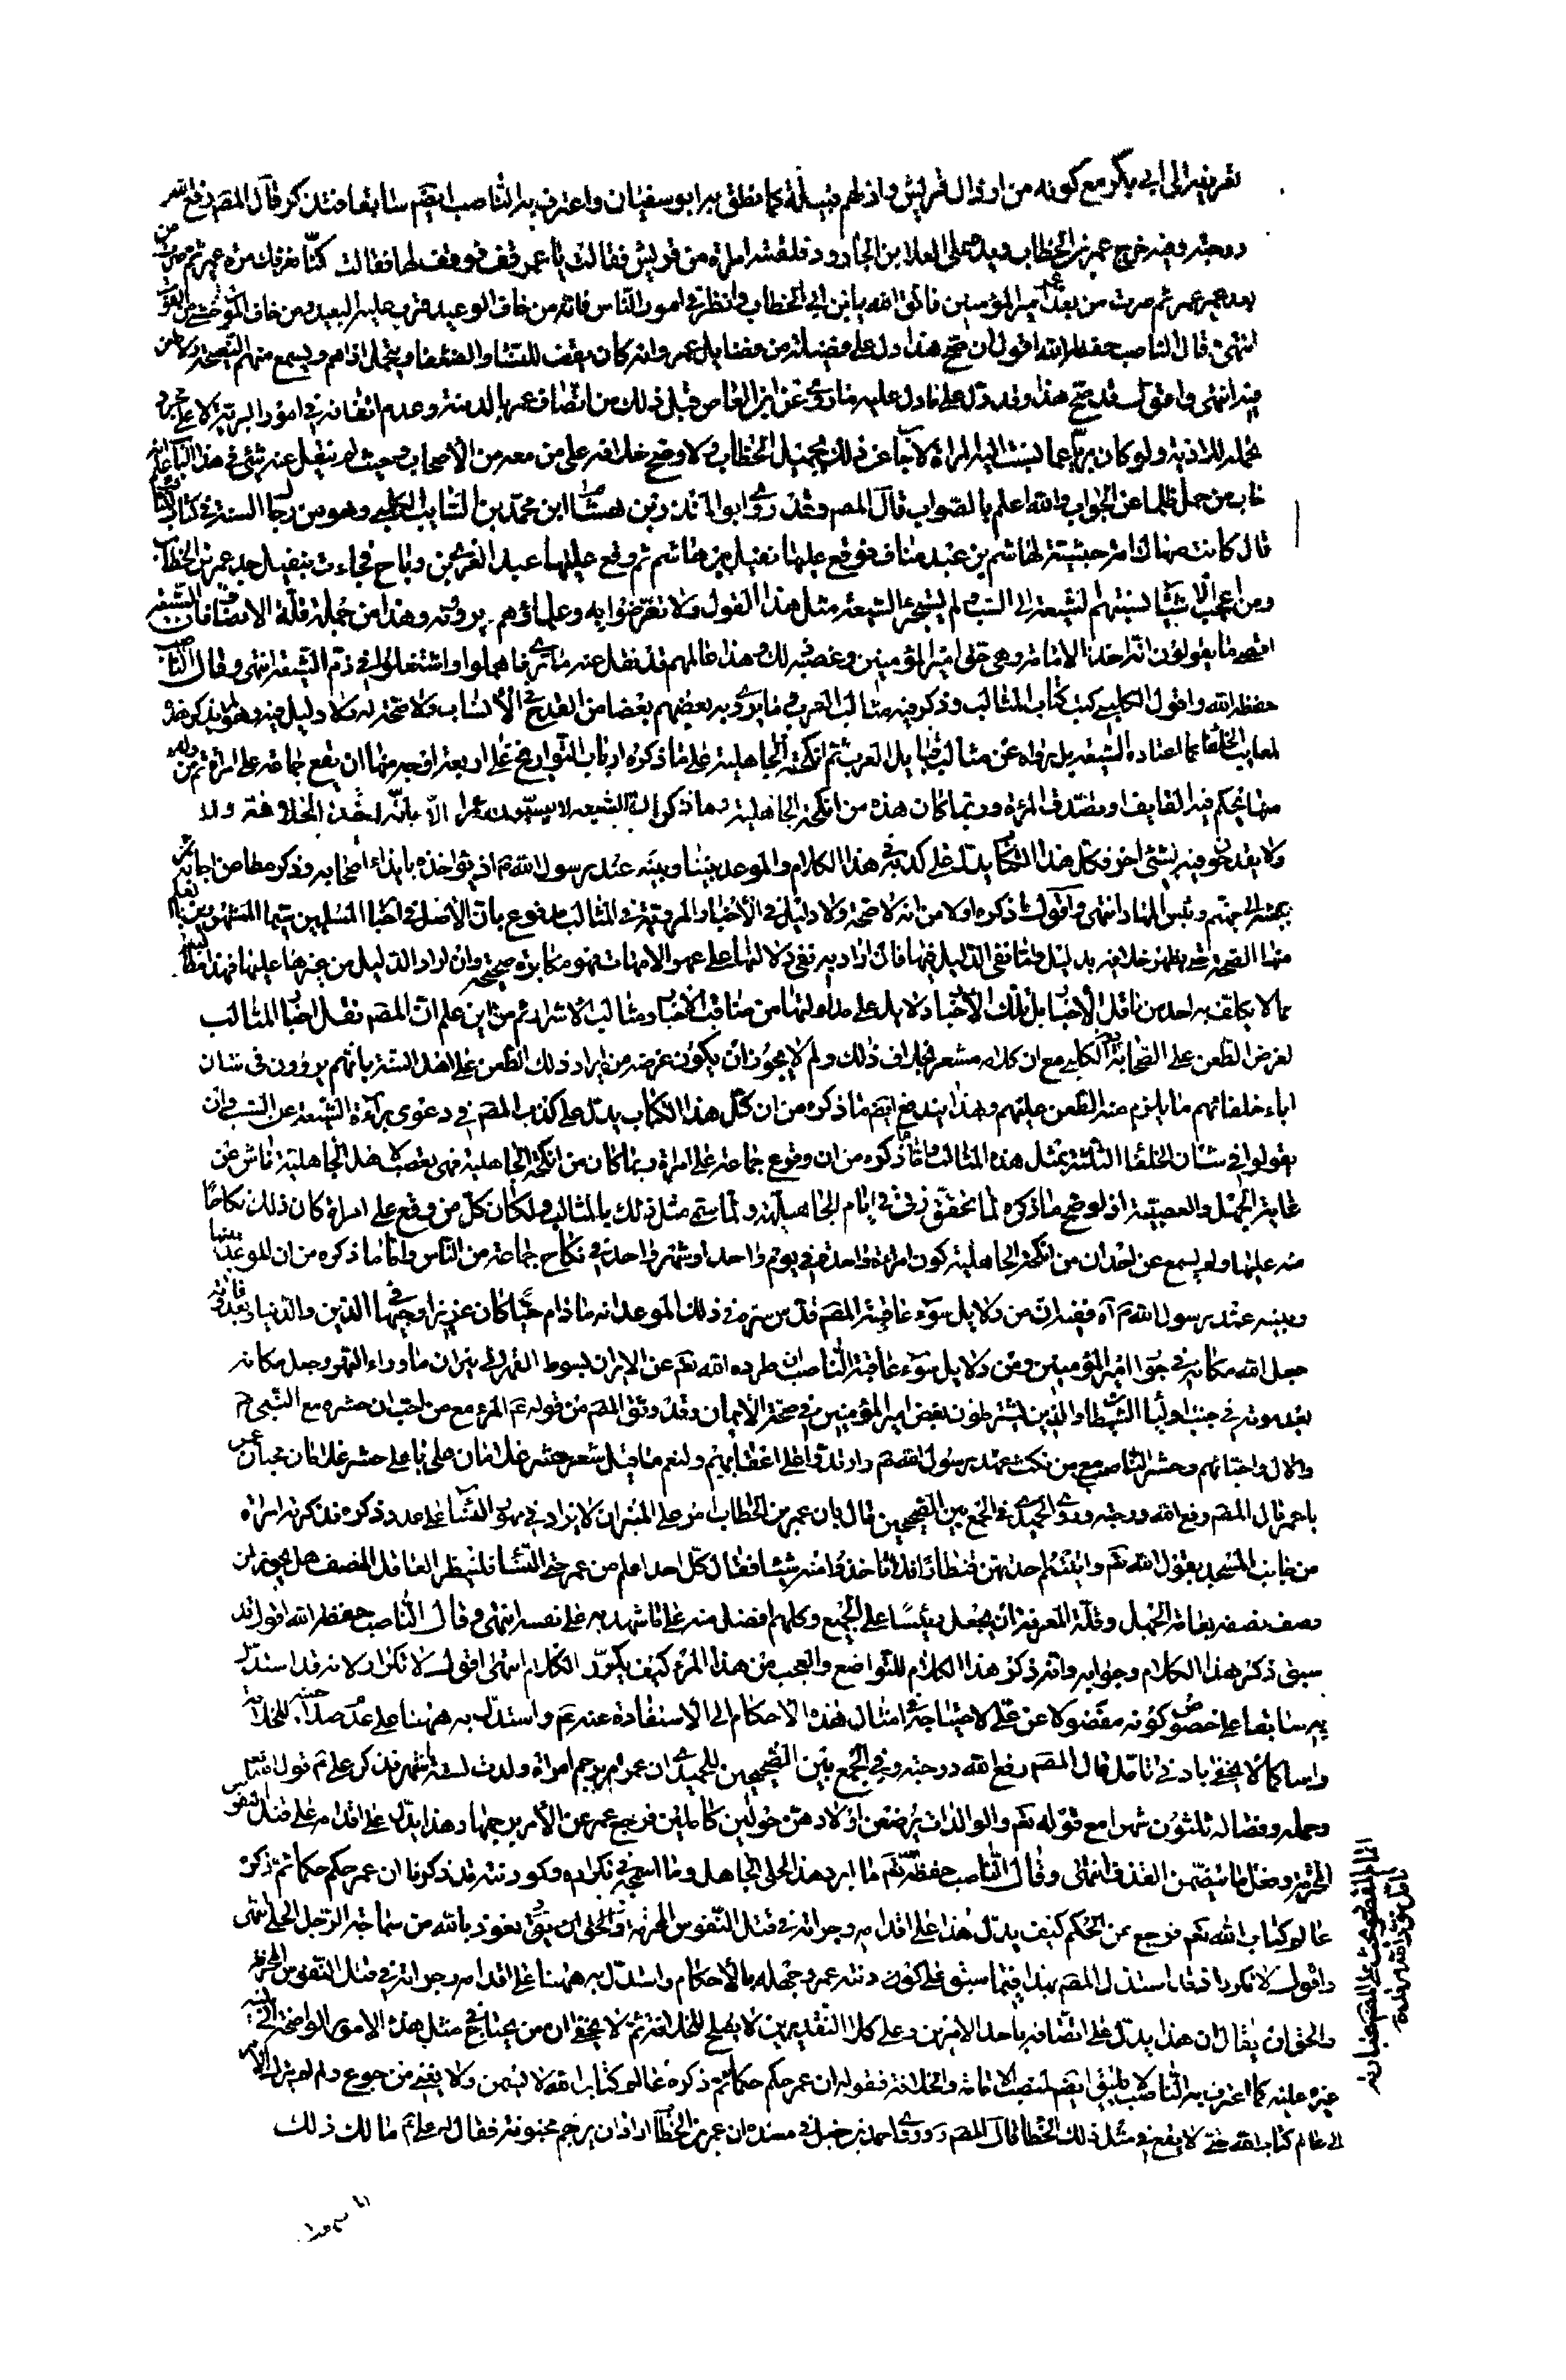 تعريضه الى ابي بكر مع كونه من ارذال قريش واذلهم قبيلة كما نطق به ابو سفيان واعترف به الناصب ايضم سابقا فتذكر قال المصم رفع الله
درجته وفيه خرج عمر بن الخطاب ويده على المعلا بن الجارود فلقيته امراة من قريش فقالت يا عمر فوقف لها فقالت كنا نعرفك مرة عميرا ثم صرت من
بعد عمير عمر ثم صرت من بعد عمر امير المؤمنين فاتق الله يا بن الخطاب وانظر في امور الناس فانه من خاف الوعيد قرب عليه البعيد ومن خاف الموت خشي الفوت
انتهى قال الناصب حفظه الله اقول ان صح هذا دل على فضيلة من فضايل عمر وانه كان يقف للنساء والضعفا ويتحمل اذاهم ويسمع منهم النصيحة ولا طعن
فيه انتهى واقول قد صح هذا وقد دل على ما دل عليه ما روى عن ابن العاص قبل ذلك من اتصاف عمر بالدنية وعدم اتقانه في امور البرية لا على
تحمله للاذية ولو كان بريا عما نسبت اليه المراة لاجاب عن ذلك بجميل الخطاب ولاوضح خلافه على من معه من الاصحاب وحيث لم ينقل عنه شئ في هذا الباب علم انه
خاب من حمل ظلما عن الجواب والله اعلم بالصواب قال المصم وقد روى ابو المنذر بن هشام ابن محمد بن السايب الكلبي وهو من رجال السنة في كتاب المثالب
قال كانت صهاك امة حبشية لهاشم بن عبد مناف فوقع عليها نفيل بن هاشم ثم وقع عليها عبد العزى بن رياح فجاءت بنفيل جد عمر بن الخطاب
ومن اعجب الاشياء نسبتهم الشيعة الى السب ولم يستجر الشيعة مثل هذا القول ولا تعرضوا به وعلماؤهم يروونه وهذا من جملة قلة الانصاف فان الشيعة
اقصى ما يقولون انه اخذ الامامة وهي حق امير المؤمنين وغصبه لك وهذا عالمهم قد نقل عنه ما ترى فاهملوا واشتغلوا في ذم الشيعة انتهى وقال الناصب
حفظه الله واقول الكلبي كتب كتاب المثالب وذكر فيه مثالب العرب وما يرد به بعضهم بعضا من القدح في الانساب ولا صحة له ولا دليل فيه وهو لا يذكر هذا
لمعايب الخلفا كما اعتاده الشيعة بل رواه عن مثالب قبايل العرب ثم انكحة الجاهلية على ما ذكره ارباب التواريخ على اربعة اوجه منها ان يقع جماعة على امراة ثم من ولد
منها يحكم فيه القايف او تصدق المرءة وربما كان هذه من انكحة الجاهلية وما ذكر ان الشيعة لا يسبون عمر الا بانه اخذ الخلافة ولا
ولا يقدحون فيه بشئ اخر فكل هذا الكتاب يدل على كذبه في هذا الكلام والموعد بيننا وبينه عند رسول الله ص اذ يؤاخذه بايذاء اصحابه وذكر مطاعن اجابه ثم
بحشره الى جهنم وبئس المهاد انتهى واقول ما ذكره اولا من انه لا صحة ولا دليل في الاخبار المروية في المثالب مدفوع بان الاصل في اخبار المسلمين سيما المشهورين بالعلم
منها الصحة حتى يظهر خلافه بدليل واما نفى الدليل فيها فان اراد به نفى دلالتها على عهر الامهات فهو مكابرة صريحة وان اراد الدليل من غيرها عليها فهذا
مما لا يكلف به احد من ناقلي الاخبار بل تلك الاخبار دلايل على مدلولها من مناقب الاخيار ومثالب الاشرار ثم من اين علم ان المصم نقل اخبار المثالب
لغرض الطعن على الصحابة الكلبي مع ان كلامه مشعر بخلاف ذلك ولم لا يجوز ان يكون غرضه من ايراد ذلك الطعن على اهل السنة بانهم يروون في شان
اباء خلفائهم ما يلزم منه الطعن عليهم وهذا يندفع ايضم ما ذكره من ان كل هذا الكتاب يدل على كذب المصم في دعوى براءة الشيعة عن السب وان
يقولوا في شان الخلفا الثلثة بمثل هذه المثالب واما ما ذكره من ان وقوع جماعة على امراة ربما كان من انكحة الجاهلية فهي تعصب لاهل الجاهلية ناش عن
غاية الجهل والعصبية اذ لو صح ما ذكره لما تحقق زنى في ايام الجاهلية ولما سمى مثل ذلك بالمثالب ولكان كل من وقع على امراة كان ذلك نكاحا
منه عليها ولم يسمع عن احد ان من انكحة الجاهلية كون امراة واحدة في يوم واحد او شهر واحد في نكاح جماعة من الناس واما ما ذكره من ان الموعد بيننا
وبينه عند رسول الله ص آه ففيه ان من دلايل سوء عاقبة المصم قد من سره في ذلك الموعد انه ما دام حيا كان عزيزا وجيها في الدين والدنيا وبعد وفاته
جعل الله مكانه في جوار امير المؤمنين ومن دلايل سوء عاقبة الناصب ان طرده الله تعم عن الايران بسوط القهر الى نيران ما وراء النهر وجعل مكانه
بعد موته في جنب اوليا الشيطان الذين يشترطون بغض امير المؤمنين في صحة الايمان وقد وثق المصم من قوله عم المرء مع من احب ان حشره مع النبي ص
والال واحبائهم وحشر الناصب مع من نكث عهد رسول الله ص وارتد على اعقابهم ولنعم ما قيل شعر حشر غلامان على با على حشر غلامان عمر
با عمر قال المصم رفع الله درجته وروى الحميدي في الجمع بين الصحيحين قال بان عمر بن الخطاب امر على المنبر ان لا يزاد في مهور النسا على عدد ذكره فذكرته امراة
من جانب المسجد بقول الله تعم واتيتم احديهن قنطارا فلا تاخذوا منه شيئا فقال كل احد اعلم من عمر حتى النساء فلينظر العاقل المنصف هل يجوز لمن
وصف نفسه بغاية الجهل وقلة المعرفة ان يجعل رئيسا على الجميع وكلهم افضل منه على ما شهد به على نفسه انتهى وقال الناصب حفظه الله اقول قد
سبق ذكر هذا الكلام وجوابه وانه ذكر هذا الكلام للتواضع والعجب من هذا المرء كيف يكرر الكلام انتهى اقول لا تكرار لانه قد استدل
به سابقا على خصوص كونه مفضولا عن على لاحتياجه في امثال هذه الاحكام الى الاستفادة عنه عم واستدل به ههنا على عدم صلاحيته للخلافة
راسا كما لا يخفى بادنى تامل قال المصم رفع الله درجته وفي الجمع بين الصحيحين للحميدي ان عمر امر برجم امراة ولدت لستة اشهر فذكر على عم قول الله تعم
وحمله وفصاله ثلثون شهرا مع قوله تعم والوالدات يرضعن اولادهن حولين كاملين فرجع عمر عن الامر برجمها وهذا يدل على اقدامه على قتل النفوس
المحرمة وفعل ما يتضمن القذف انتهى وقال الناصب حفظه الله تعم ما ابرد هذا الحلي الجاهل وما اسمجه في تكراره وكودنته قد ذكر فا ان عمر حكم حكما ثم ذكره
عالم كتاب الله تعم فرجع عن الحكم كيف يدل هذا على اقدامه وجراته في قتل النفوس المحرمة والحق ان يقال نعوذ بالله من سماجة الرجل الحلي انتهى
واقول لا تكرر اذ قد استدل المصم بهذا فيما سبق على كودنته عمر وجهله بالاحكام واستدل به ههنا على اقدامه وجراته في قتل النفوس المحرمة
والحق ان يقال ان هذا يدل على اتصافه باحد الامرين وعلى كلا التقديرين لا يصلح للخلافة ثم لا يخفى ان من يحتاج في مثل هذه الامور الواضحة الى تنبيه
غيره عليه كما اعترف به الناصب لا يليق ايضم لمنصب الامامة والخلافة فقوله ان عمر حكم حكما ثم ذكره عالم كتاب الله لا يسمن ولا يغنى من جوع ولم لم يترك الامر
الى عالم كتاب الله حتى لا يقع في مثل ذلك الخطا قال المصم وروى احمد بن حنبل في مسنده ان عمر بن الخطاب اراد ان يرجم مجنونة فقال له على عم مالك ذلك